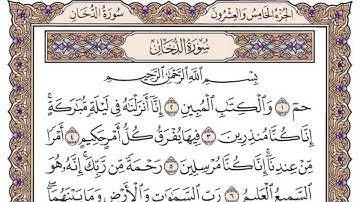 الجزء الخامس والعشرون سورة الدخان
سورة الدخان
بسم الله الرحمن الرحيم
حمٓ ۝١ وَالْكِتَٰبِ الْمُبِينِ ۝٢ إِنَّآ أَنزَلْنَٰهُ فِى لَيْلَةٍ مُّبَٰرَكَةٍ ۚ
إِنَّا كُنَّا مُنذِرِينَ ۝٣ فِيهَا يُفْرَقُ كُلُّ أَمْرٍ حَكِيمٍ ۝٤ أَمْرًا
مِّنْ عِندِنَآ ۚ إِنَّا كُنَّا مُرْسِلِينَ ۝٥ رَحْمَةً مِّن رَّبِّكَ ۚ إِنَّهُۥ هُوَ
السَّمِيعُ الْعَلِيمُ ۝٦ رَبِّ السَّمَٰوَٰتِ وَالْأَرْضِ وَمَا بَيْنَهُمَآ ۖ